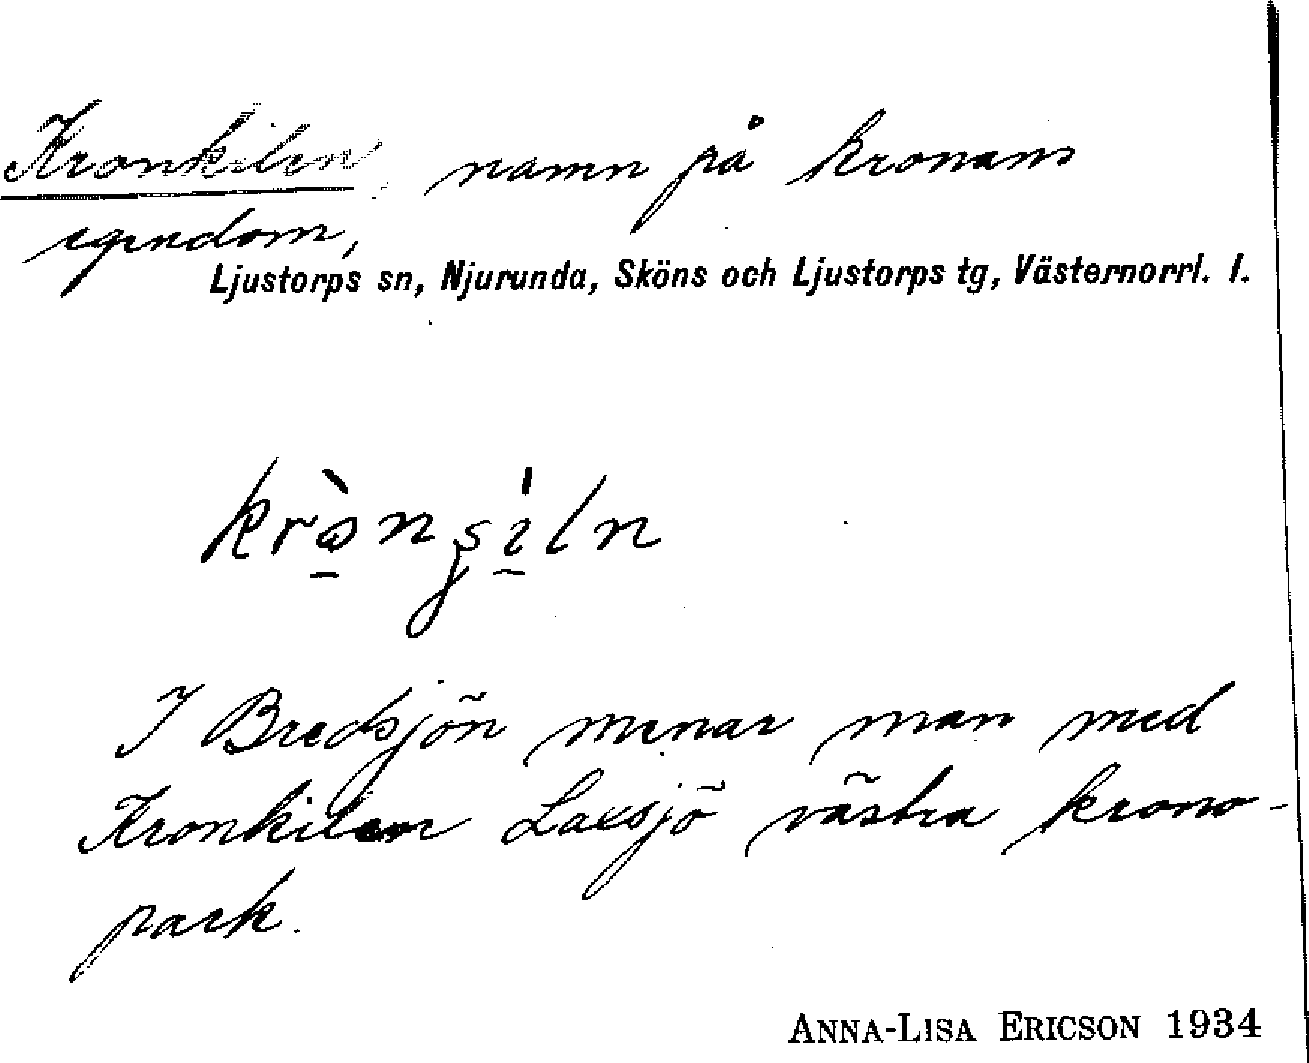 Kronkilen, namn på kronans
egendom,
Ljustorps sn, Njurunda, Sköns och Ljustorps tg, Västernorrl. l.
I Bredsjön menar man med
Kronkilen Laxsjö västra krono-
park.
ANNA-LISA ERICSON 1934